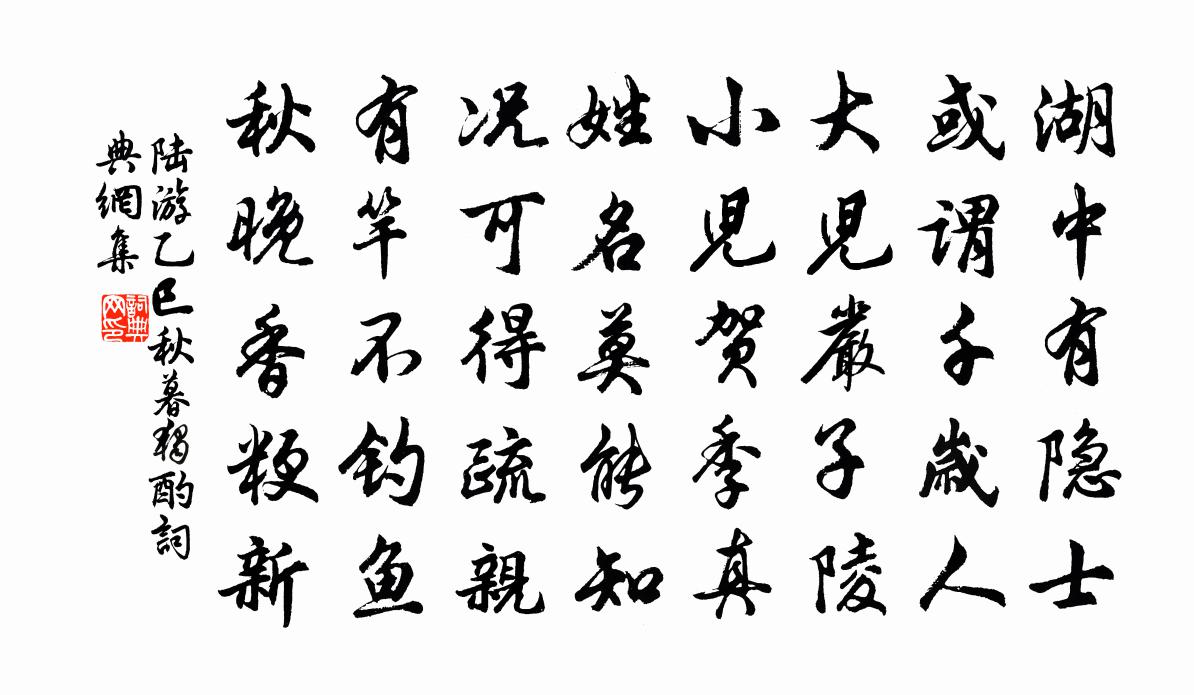 湖中有隐士
或谓千歳人
大児嚴子陵
小児贺季真
姓名莫能知
况可得疏親
有竿不钓鱼
秋晚香粳新
陆游乙巳秋暮獨酌詞
典網集
詞典
网印